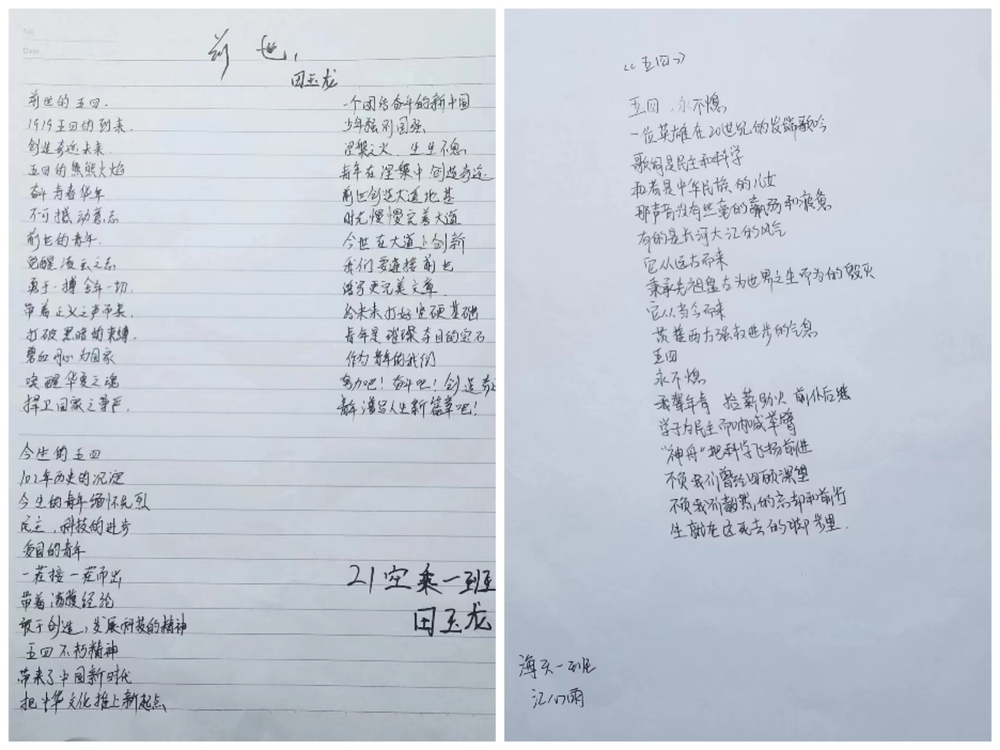 No.
Date
前世
田玉龙
前世的五四
1919五四的到来
创造奇迹未来
五四的熊熊火焰
奋斗青春华年
不可撼动意志
前世的青年
觉醒凌云之志
勇于一搏舍弃一切
带着正义之声而来
打破黑暗的束缚
碧血丹心为国家
唤醒华夏之魂
捍卫国家之尊严
今生的五四
102年历史的沉淀
今生的青年缅怀先烈
民主、科技的进步
委目的青年
一茬接一茬而出
带着满腹经纶
敢于创造,发展科技的精神
五四不朽精神
带来了中国新时代
把中华文化推上新起点
一个团结奋斗的新中国
少年强则国强
涅槃之火 生生不息
青年在涅槃中创造奇迹
前世创造大道地基
时光慢慢完善大道
今世在大道上创新
我们要连接前世
谱写更完美文章
给未来打好坚硬基础
青年是璀璨夺目的宝石
作为青年的我们
努力吧!奋斗吧!创造奇迹
谱写人生新篇章吧!
21空乘一班
田玉龙
《五四》
五四,永不熄
一位英雄在20世纪的发端歌吟
歌词是民主和科学
和者是中华民族的儿女
那声音没有丝毫的羸弱和疲惫
有的是长河大江的风气
它从远古而来
秉承先祖盘古为世界之生而为的毁灭
它从当今而来
西方强权进步的气息
五四
永不熄
我辈年青 拾薪助火 前仆后继
学子为民主而呐喊举臂
“神舟”把科学飞扬前进
不负我们曾经回顾深望
不负我们的忘却和前行
生就在这死去的脚步里
海关一班
江心雨